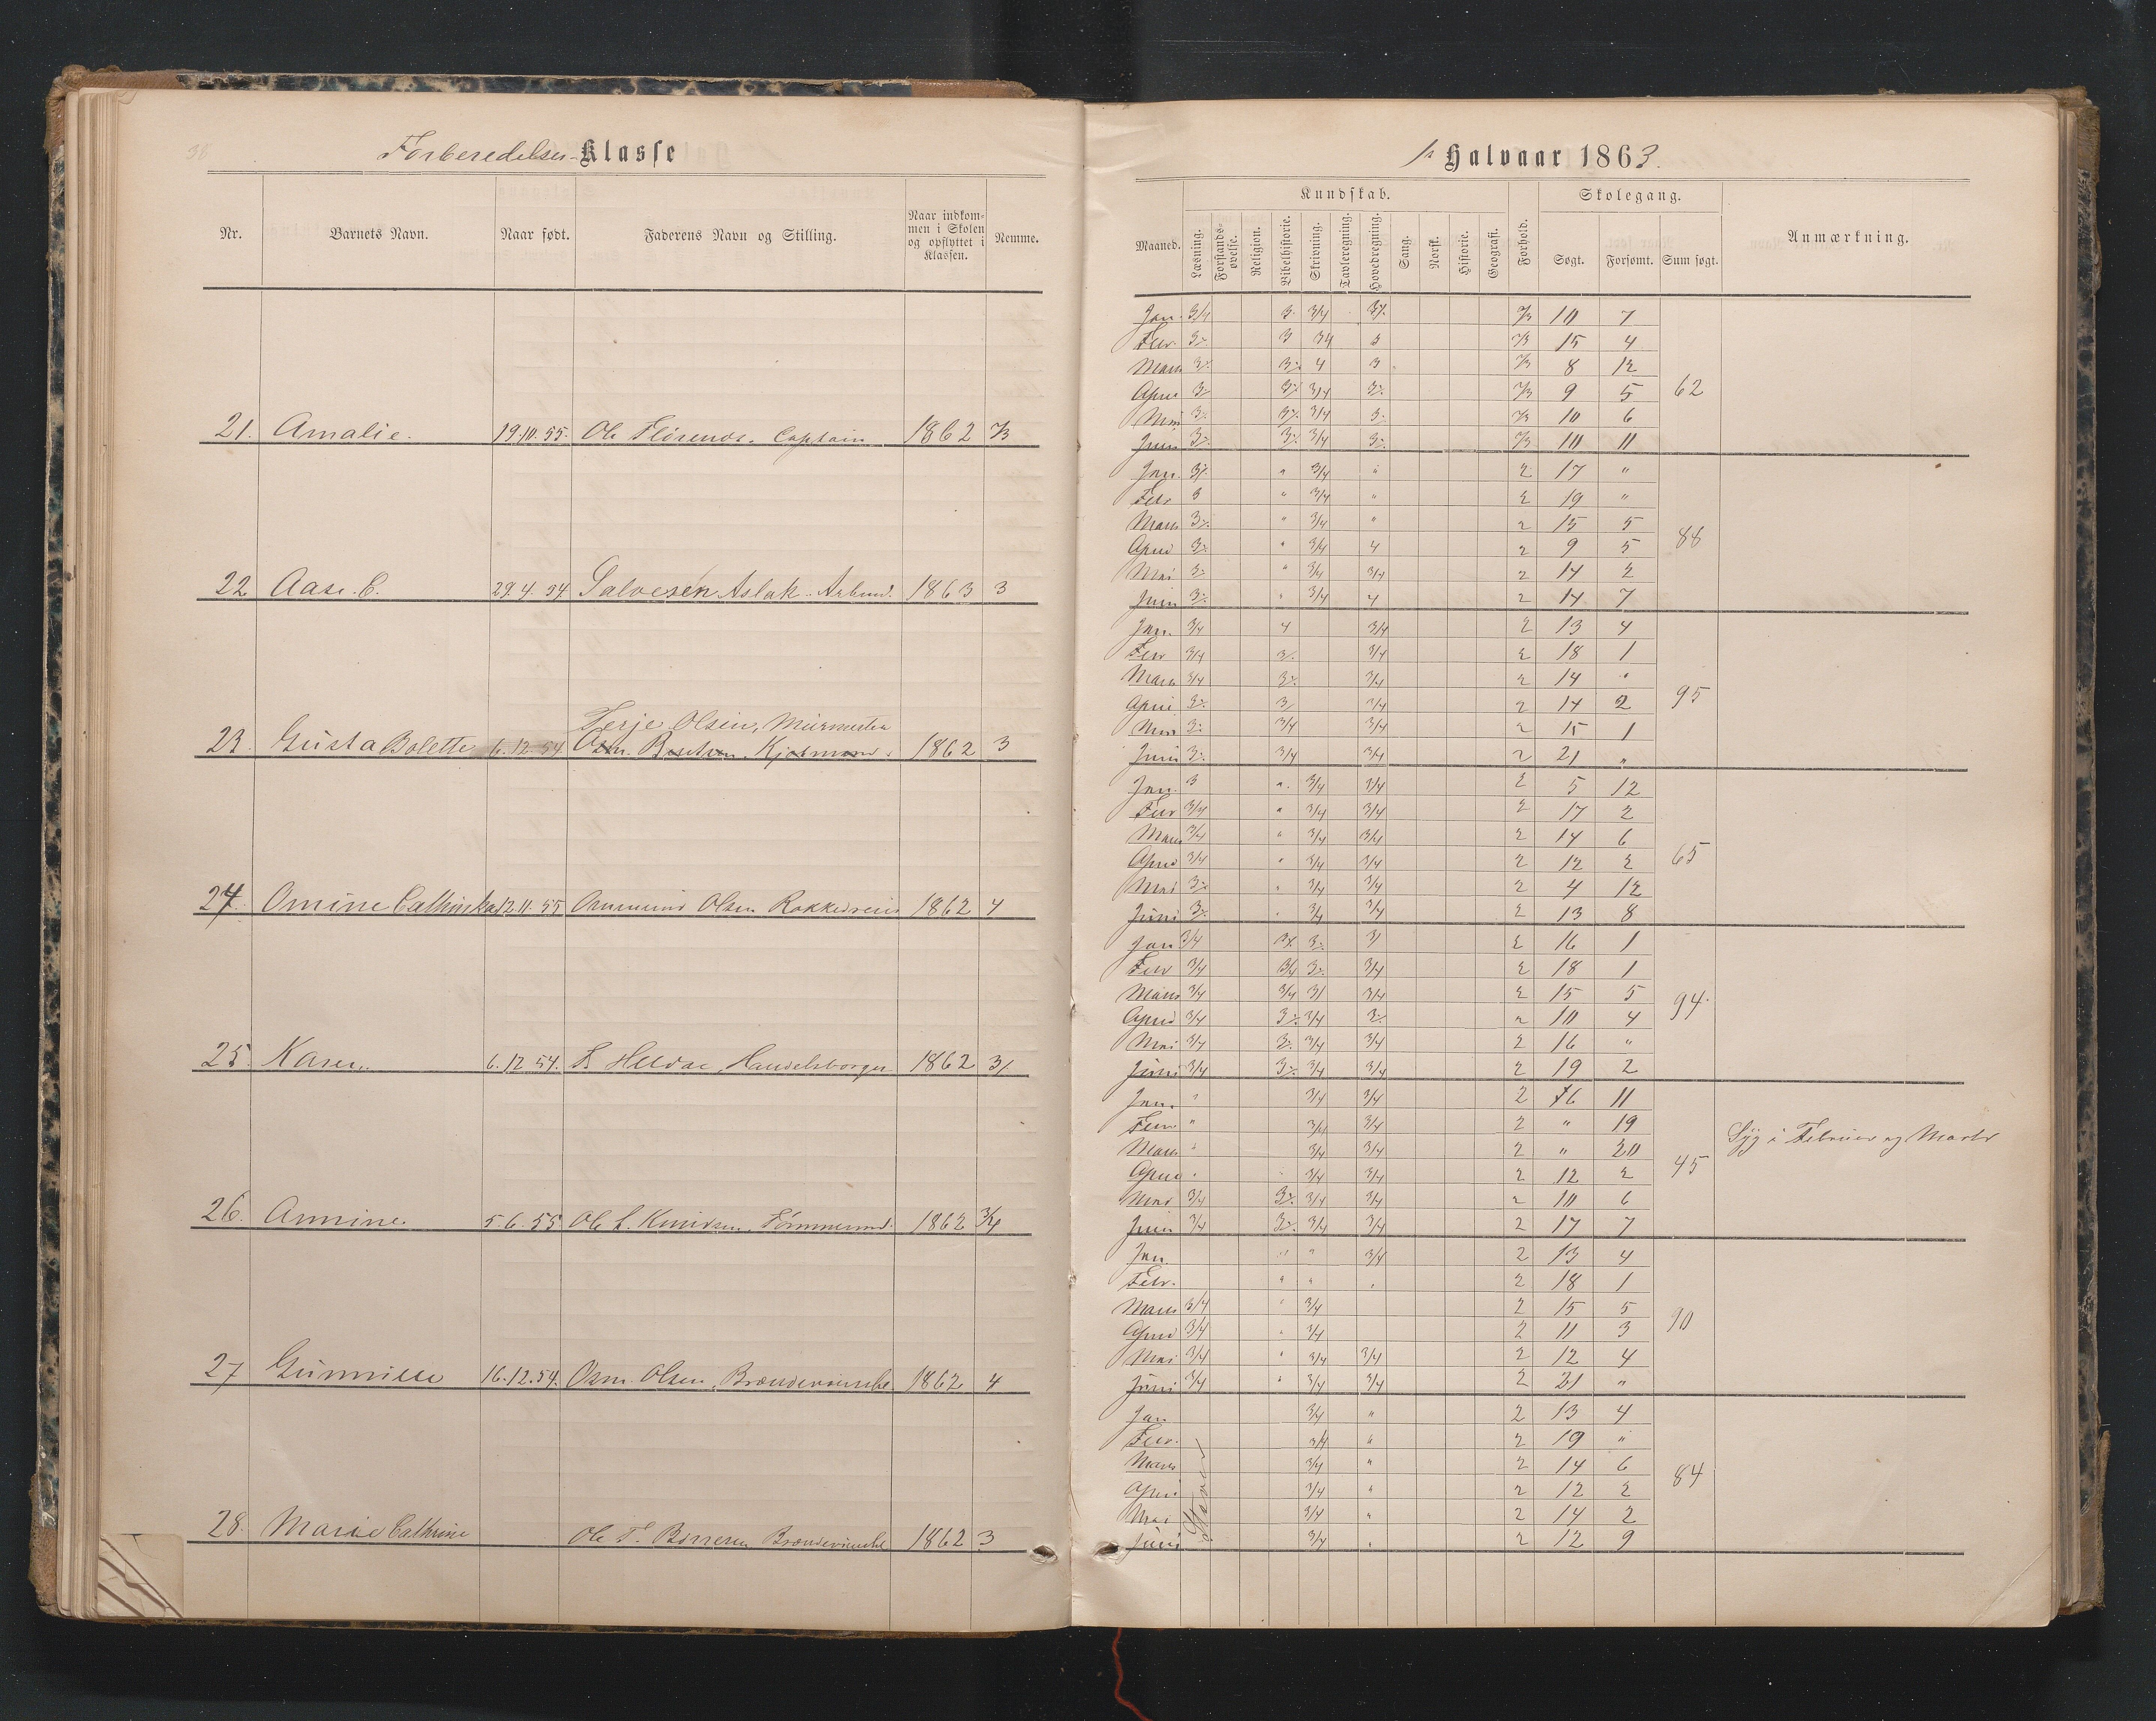 38
Forberedelses-Klasse
Nr. Barnets Navn. Naar født. Faderens Navn og Stilling. Naar indkommen i Skolen og opflyttet i Klassen. Nemme.
21. Amalie. 19.10.55. Ole Captain 1862
22 Aase. C. 29.4.54. Salvesen Aslak. Arbmd. 1863 3
Terje Olsen, Muurmester
23. Gusta Bolette 6.12.54 1862 3
24. Omine Cathinka 12.11.55 Olsen 1862 4
25. Karen. 6.12.54. Handelsborger 1862
26. Annine. 5.6.55 Ole Tømmermd. 1862 3/4
27 Gunnille 16.12.54. Osm. Olsen, 1862 4
28. Marie Cathrine Ole T. 1862 3
1ste Halvaar 1863.
Maaned. Kundskab. Forhold. Skolegang. Anmærkning.
Læsning. Forstandsøvelse. Religion. Bibelhistorie. Skrivning. Tavleregning. Hovedregning. Sang. Norsk. Historie. Geografi. Søgt. Forsømt. Sum søgt.
Jan. 3/4 3 3/4 10 7
Febr. 3 15 4
Marts 4 3 8 12
April 3/4 9 5 62
Mai 3/4 10 6
Juni 3/4 10 11
Jan. " 3/4 " 2 17 "
Febr 3 " 3/4 " 2 19 "
Marts " 3/4 " 2 15 5
April " 3/4 4 2 9 5 88
Mai " 3/4 3/4 2 14 2
Juni " 3/4 4 2 14 7
Jan. 3/4 4 3/4 2 13 4
Febr 3/4 3/4 2 18 1
Marts 3/4 3/4 2 14 "
April 3/4 2 14 2 95
Mai 3/4 3/4 2 15 1
Juni 3/4 3/4 2 21 "
Jan. 3 " 3/4 3/4 2 5 12
Febr 3/4 " 3/4 3/4 2 17 2
Marts 3/4 " 3/4 3/4 2 14 6
April 3/4 " 3/4 3/4 2 12 2 65
Mai " 3/4 3/4 2 4 12
Juni " 3/4 3/4 2 13 8
Jan 3/4 2 16 1
Febr 3/4 3/4 3/4 2 18 1
Marts 3/4 3/4 3/4 2 15 5 94.
April 3/4 3/4 2 10 4
Mai 3/4 3/4 3/4 2 16 "
Juni 3/4 3/4 3/4 2 19 2
Jan. " 3/4 3/4 2 6 11
Febr " 3/4 3/4 2 " 19 Syg i Februar og Marts
Marts " 3/4 3/4 2 " 20
April " 3/4 3/4 2 12 2 45
Mai 3/4 3/4 3/4 2 10 6
Juni 3/4 3/4 3/4 2 17 7
Jan. " " 3/4 2 13 4
Febr. " " " 2 18 1
Marts 3/4 " 3/4 2 15 5
April 3/4 " 3/4 2 11 3 90
Mai 3/4 " 3/4 3/4 2 12 4
Juni 3/4 " 3/4 3/4 2 21 "
Jan 3/4 " 2 13 4
Febr. 3/4 " 2 19 "
Marts 3/4 " 2 14 6
April 3/4 " 2 12 2 84
Mai 3/4 " 2 14 2
Juni 3/4 " 2 12 9
Staver